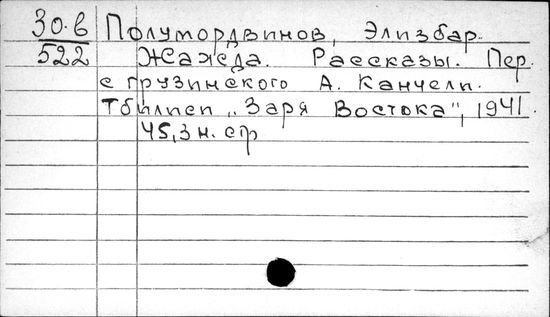 30-в Полумордвинов, Элизбар.
522 Жажда. Рассказы. Пер.
с грузинского А. Канчели.
Тбилиси „Заря Востока", 1941.
45,3 н. стр